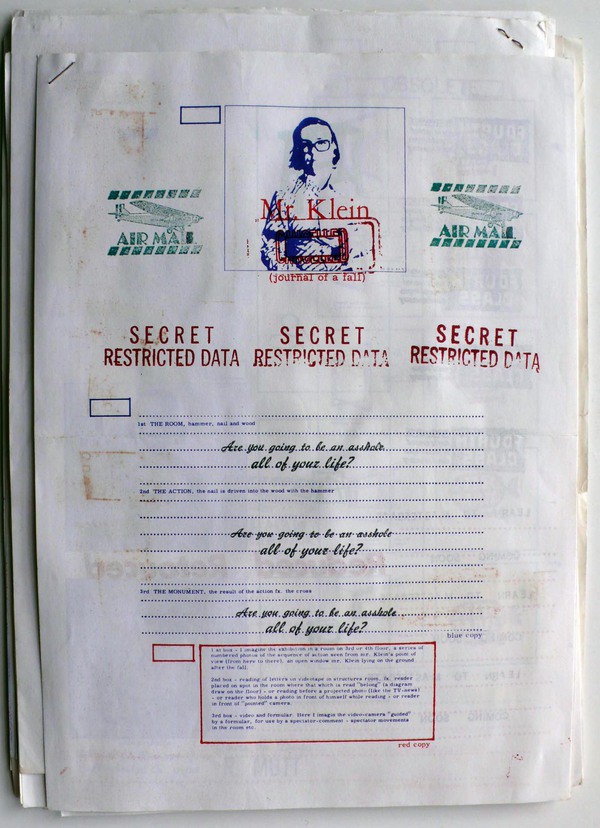 Mr. Klein
(journal of a fall)
AIR MAIL
AIR MAIL
SECRET
RESTRICTED DATA
SECRET
RESTRICTED DATA
SECRET
RESTRICTED DATA
1st THE ROOM, hammer, nail and wood
Are you going to be an asshole
all of your life?
2nd THE ACTION, the nail is driven into the wood with the hammer
Are you going to be an asshole
all of your life?
3rd THE MONUMENT, the result of the action fx. the cross
Are you going to be an asshole
all of your life?
blue copy
1 st box - I imagine the exhibition in a room on 3rd or 4th floor; a series of
numbered photos of the sequence of action seen from mr. Klein's point of
view (from here to there), an open window mr. Klein lying on the ground
after the fall.
2nd box - reading of letters on videotape in structures room, fx. reader
placed on spot in the room where that which is read "belong" (a diagram
draw on the floor) - or reading before a projected photo (like the TV-news)
- or reader who holds a photo in front of himself while reading - or reader
in front of "pointed" camera.
3rd box - video and formular. Here I imagin the video-camera "guided"
by a formular, for use by a spectator-comment - spectator movements
in the room etc.
red copy